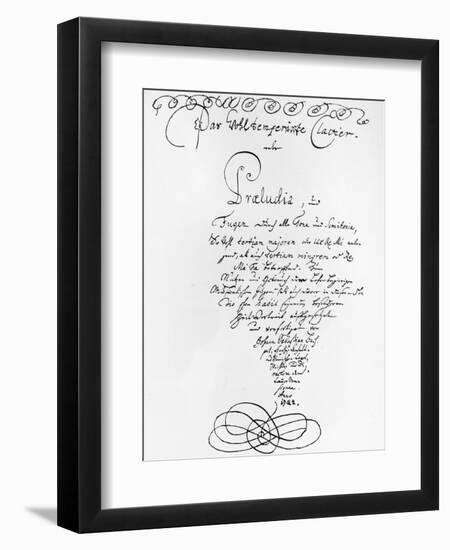 Das Wohltemperirte Clavier.
oder
Præludia, und
Fugen durch alle Tone und Semitonia,
So wohl tertiam majorem oder Ut Re Mi anlan-
gend, als auch tertiam minorem oder Re
Mi Fa betreffend. Zum
Nutzen und Gebrauch der Lehrbegierigen
Musicalischen Jugend, als auch derer in diesem stu-
dio schon habil seyenden besonderem
Zeitvertreib auffgesetzet
und verfertiget von
Johann Sebastian Bach.
Anno
1722.